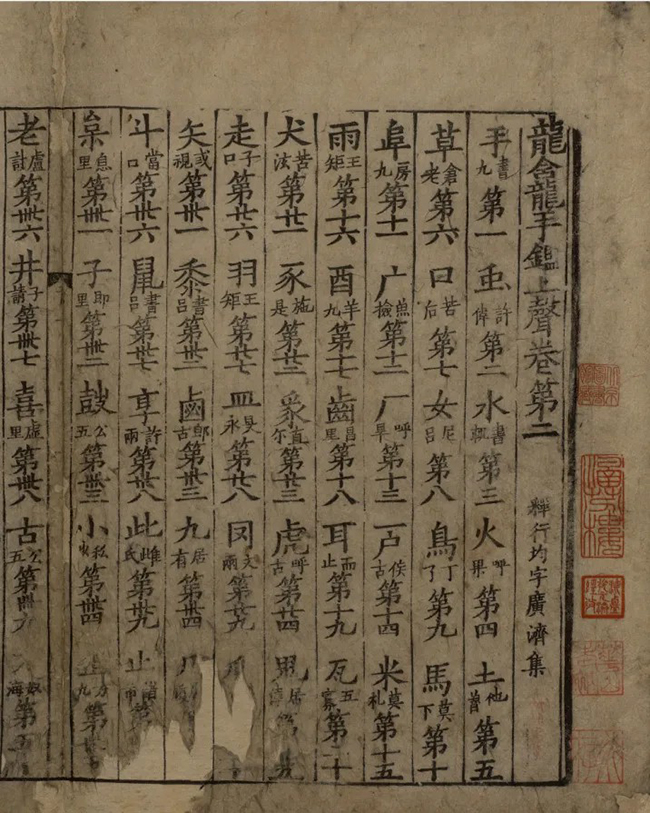 龍龕手鑑上聲卷第二 釋行均字廣濟集
手書九第一 虫許偉第二 水書軌第三 火呼果第四 土他魯第五
草倉老第六 口苦后第七 女尼呂第八 鳥丁了第九 馬莫下第十
阜房九第十一 广魚撿第十二 厂呼旱第十三 戶侯古第十四 米莫札第十五
雨王矩第十六 酉羊九第十七 齒昌里第十八 耳而止第十九 瓦五寡第二十
犬苦泫第廿一 豕施是第廿二 豸直尔第廿三 虎呼古第廿四 鬼居第廿
走子口第廿六 羽王矩第廿七 皿旻永第廿八 罓文兩第廿九
矢式視第卅一 黍書呂第卅二 鹵郎古第卅三 九居有第卅四
斗當口第卅六 鼠書呂第卅七 享許兩第卅八 此雌氏第卅九 止諸第
枲息里第卌一 子即里第卌二 鼓公五第卌三 小私兆第卌四 方九第
老盧討第卌六 井子請第卌七 喜虛里第卌八 古公五第卌九 海第五